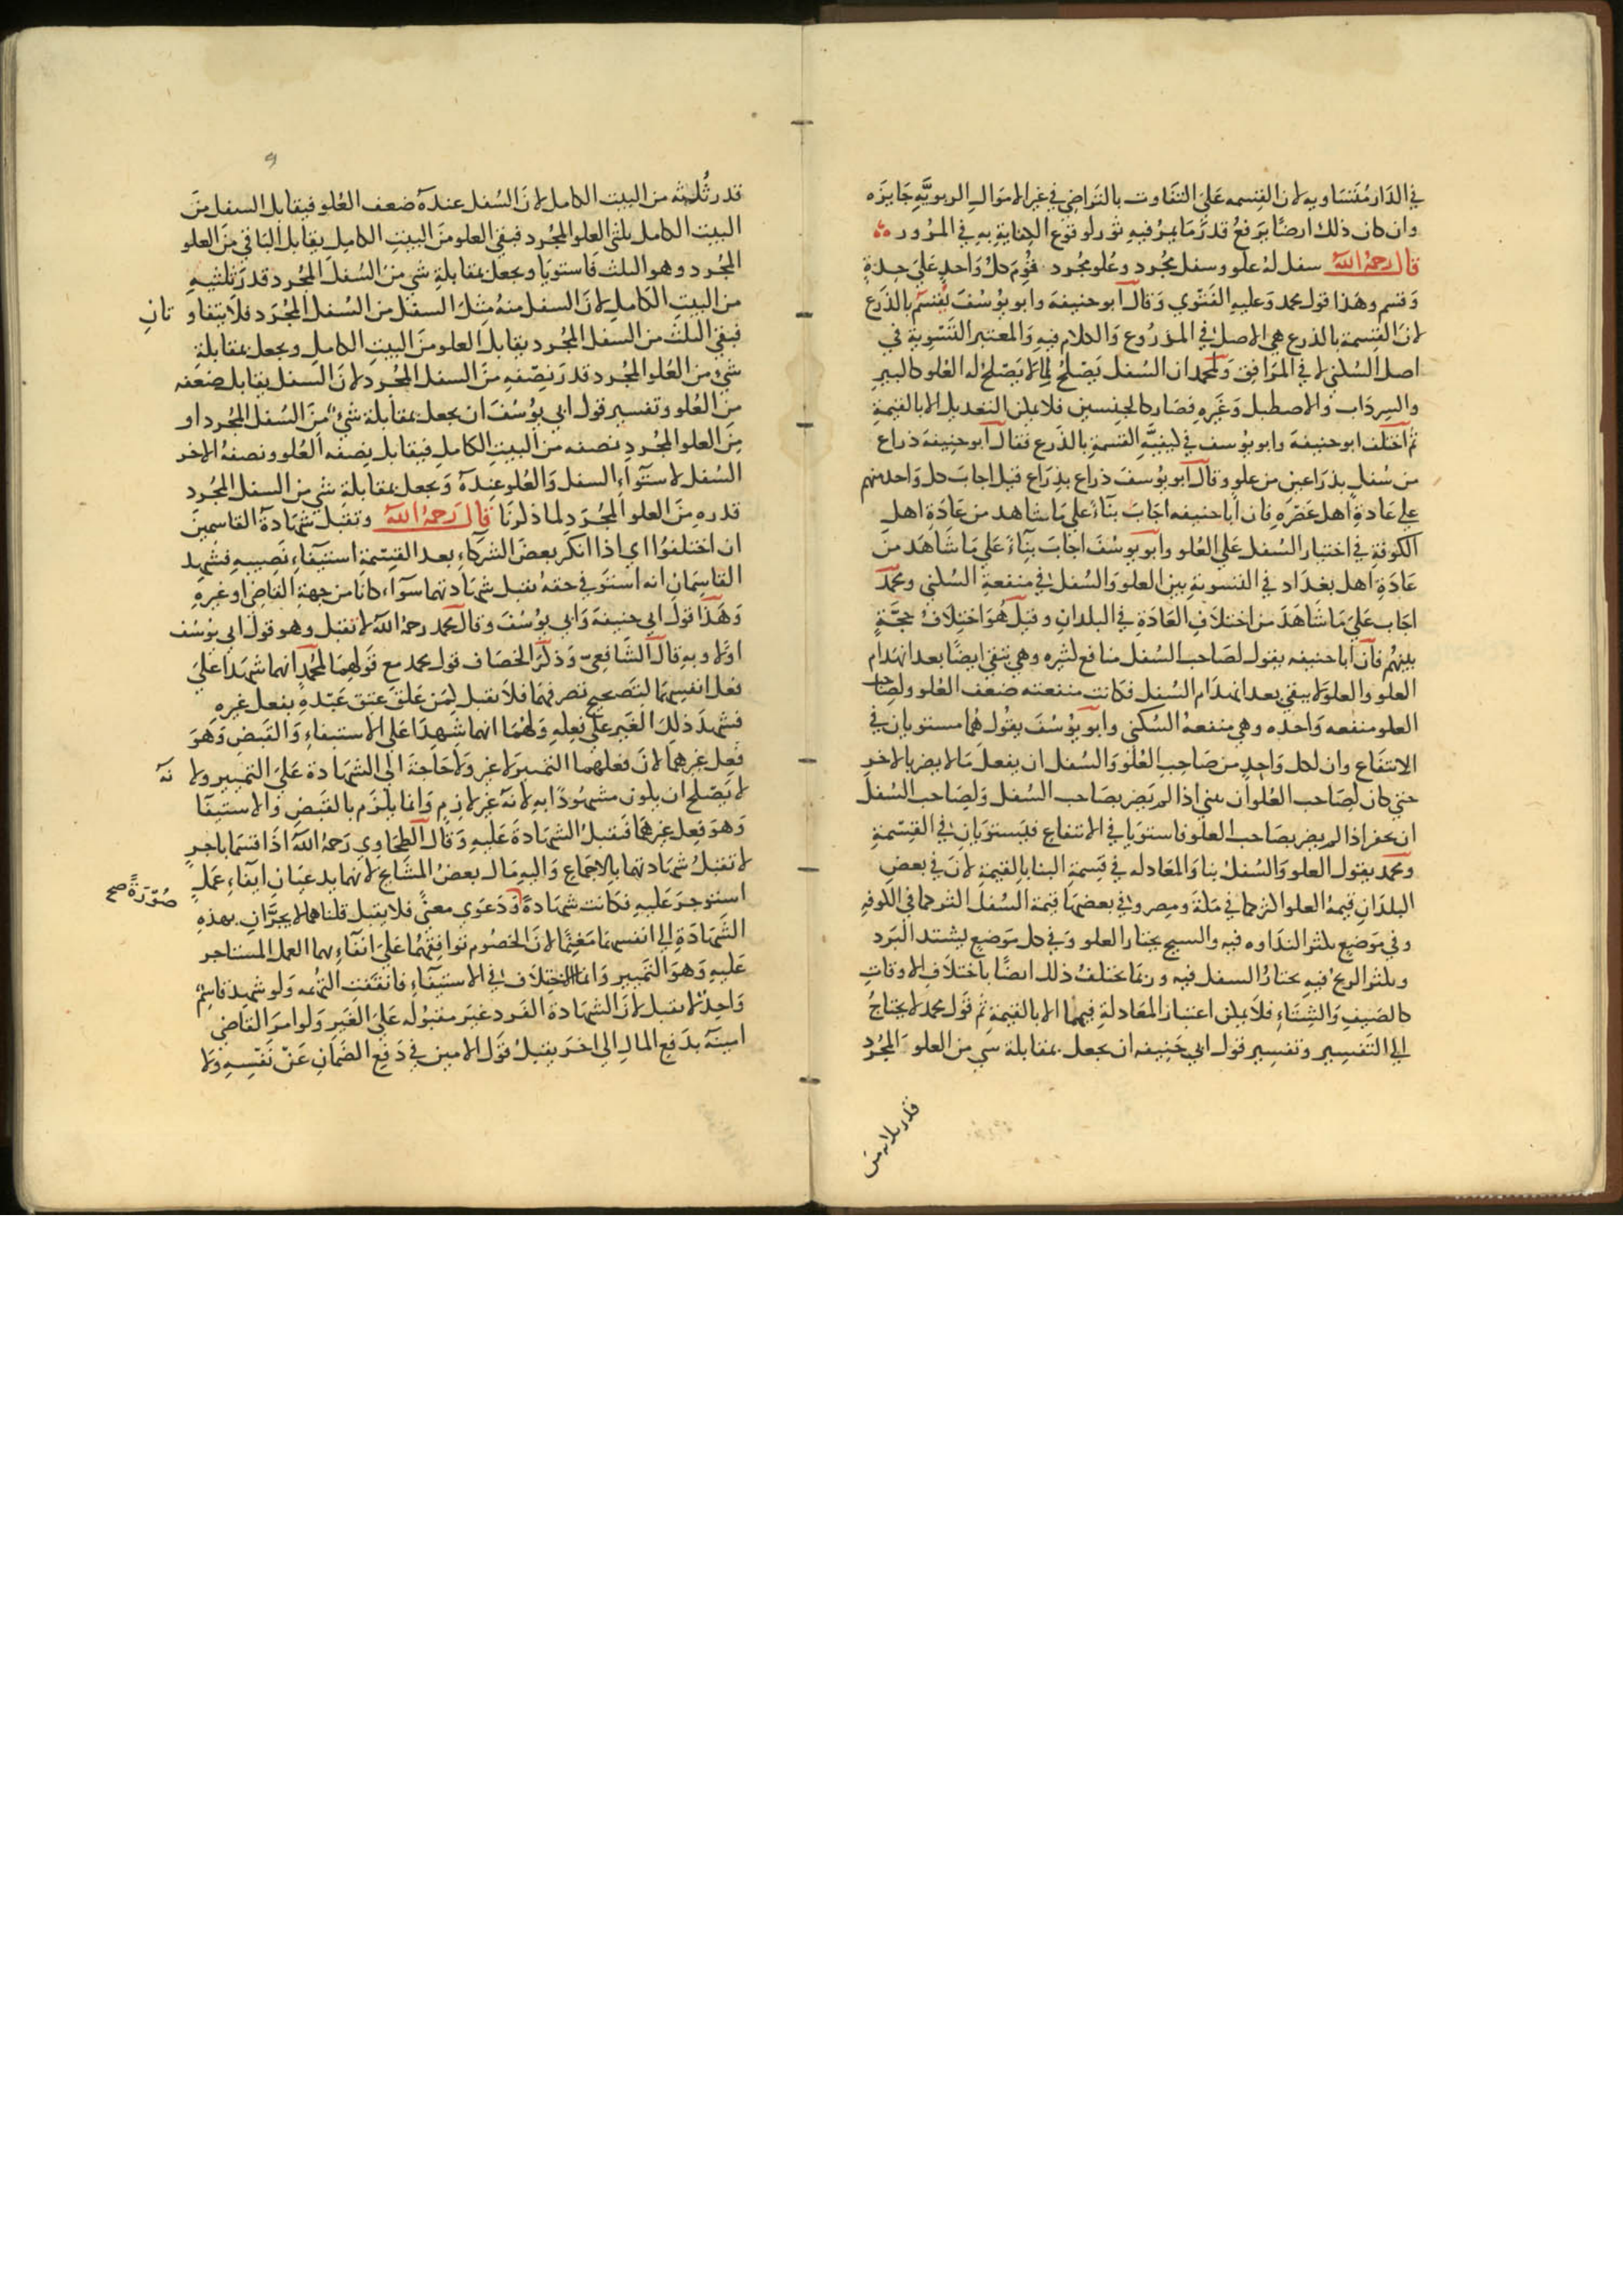 في الدار متساويه لان القسمه على التفاوت بالتراضي في غير الاموال الربويه جايزه
وان كان ذلك ارضا يرفع قدر ما يمر فيه ثور لوقوع الكفاية به في المرور
قال رحمه الله سفل له علو وسفل مجرد وعلو مجرد قوم كل واحد على حدة
وقسم وهذا قول محمد وعليه الفتوي وقال ابو حنيفة وابو يوسف يقسم بالذرع
لان القسمة بالذرع هي الاصل في المذروع والكلام فيه والمعتبر التسوية في
اصل السكني لا في المرافق ولمحمد ان السفل يصلح لما لا يصلح له العلو كالبير
والسرداب والاصطبل وغيره فصار كالجنسين فلا يمكن التعديل الا بالقيمة
ثم اختلف ابو حنيفة وابو يوسف في كيفية القسمة بالذرع فقال ابو حنيفة ذراع
من سفل بذراعين من علو وقال ابو يوسف ذراع بذراع قيل اجاب كل واحد منهم
على عادة اهل عصره فان ابا حنيفه اجاب بناء على ما شاهد من عادة اهل
الكوفة في اختيار السفل على العلو وابو يوسف اجاب بناء على ما شاهد من
عادة اهل بغداد في التسوية بين العلو والسفل في منفعة السكني ومحمد
اجاب على ما شاهد من اختلاف العادة في البلدان وقيل هو اختلاف حجة
بينهم فان ابا حنيفه يقول لصاحب السفل منافع كثيره وهي تبقى ايضا بعد انهدام
العلو والعلو لا يبقي بعد انهدام السفل فكانت منفعته ضعف العلو ولصاحب
العلو منفعه واحده وهي منفعة السكنى وابو يوسف يقول هما مستويان في
الانتفاع وان لكل واحد من صاحب العلو والسفل ان يفعل ما لا يضر بالاخر
حتي كان لصاحب العلو ان يبني اذا لم يضر بصاحب السفل ولصاحب السفل
ان يحفر اذا لم يضر بصاحب العلو فاستويا في الانتفاع فيستويان في القسمة
ومحمد يقول العلو والسفل بنا والمعادله في قسمة البنا بالقيمة لان في بعض
البلدان قيمة العلو اكثر كما في مكة ومصر وفي بعضها قيمة السفل اكثر كما في الكوفه
وفي موضع يكثر النداوه فيه والسبخ يختار العلو وفي كل موضع يشتد البرد
ويكثر الريح فيه يختار السفل فيه وربما يختلف ذلك ايضا باختلاف الاوقات
كالصيف والشتاء فلا يمكن اعتبار المعادلة فيهما الا بالقيمة ثم قول محمد لا يحتاج
الي التفسير وتفسير قول ابي حنيفه ان يجعل بمقابلة شي من العلو المجرد
قدر ثلاثه من
قدر ثلثه من البيت الكامل لان السفل عنده ضعف العلو فيقابل السفل من
البيت الكامل بثلثي العلو المجرد فبقي العلو من البيت الكامل يقابل الباقي من العلو
المجرد وهو الثلث فاستويا ويجعل بمقابلة شي من السفل المجرد قدر ثلثيه
من البيت الكامل لان السفل منه مثل السفل من السفل المجرد فلا يتفاوتان
فبقي الثلث من السفل المجرد يقابل العلو من البيت الكامل ويجعل بمقابلة
شي من العلو المجرد قدر نصفه من السفل المجرد لان السفل يقابل ضعفه
من العلو وتفسير قول ابي يوسف ان يجعل بمقابلة شي من السفل المجرد او
من العلو المجرد نصفه من البيت الكامل فيقابل نصفه العلو ونصفه الاخر
السفل لاستواء السفل والعلو عنده ويجعل بمقابلة شي من السفل المجرد
قدره من العلو المجرد لما ذكرنا قال رحمه الله وتقبل شهادة القاسمين
ان اختلفوا اي اذا انكر بعض الشركاء بعد القسمة استيفاء نصيبه فشهد
القاسمان انه استوفي حقه تقبل شهادتهما سواء كانا من جهة القاضي او غيره
وهذا قول ابي حنيفة وابي يوسف وقال محمد رحمه الله لا تقبل وهو قول ابي يوسف
اولا وبه قال الشافعي وذكر الخصاف قول محمد مع قولهما لمحمد انهما شهدا على
فعل انفسهما لتصحيح تصرفهما فلا تقبل كمن علق عتق عبده بفعل غيره
فشهد ذلك الغير على فعله ولهما انهما شهدا على الاستيفاء والقبض وهو
فعل غيرهما لان فعلهما التمييز لا غير ولا حاجة الى الشهادة على التمييز ولانه
لا يصلح ان يكون مشهودا به لانه غير لازم وانما يلزم بالقبض والاستيفا
وهو فعل غيرهما فتقبل الشهادة عليه وقال الطحاوي رحمه الله اذا قسما باجر
لا تقبل شهادتهما بالاجماع واليه مال بعض المشايخ لانهما يدعيان ايفاء عمل
استوجر عليه فكانت شهادة صورة صح ودعوى معنى فلا يقبل قلنا هما لا يجران بهذه
الشهادة الي انفسهما مغنما لان الخصوم توافقهما على ايفاءهما العمل المستاجر
عليه وهو التمييز وانما الاختلاف في الاستيفاء فانتفت التهمه ولو شهد قاسم
واحد لا تقبل لان الشهادة الفرد غير مقبوله على الغير ولو امر القاضي
امينه بدفع المال الى اخر يقبل قول الامين في دفع الضمان عن نفسه ولا